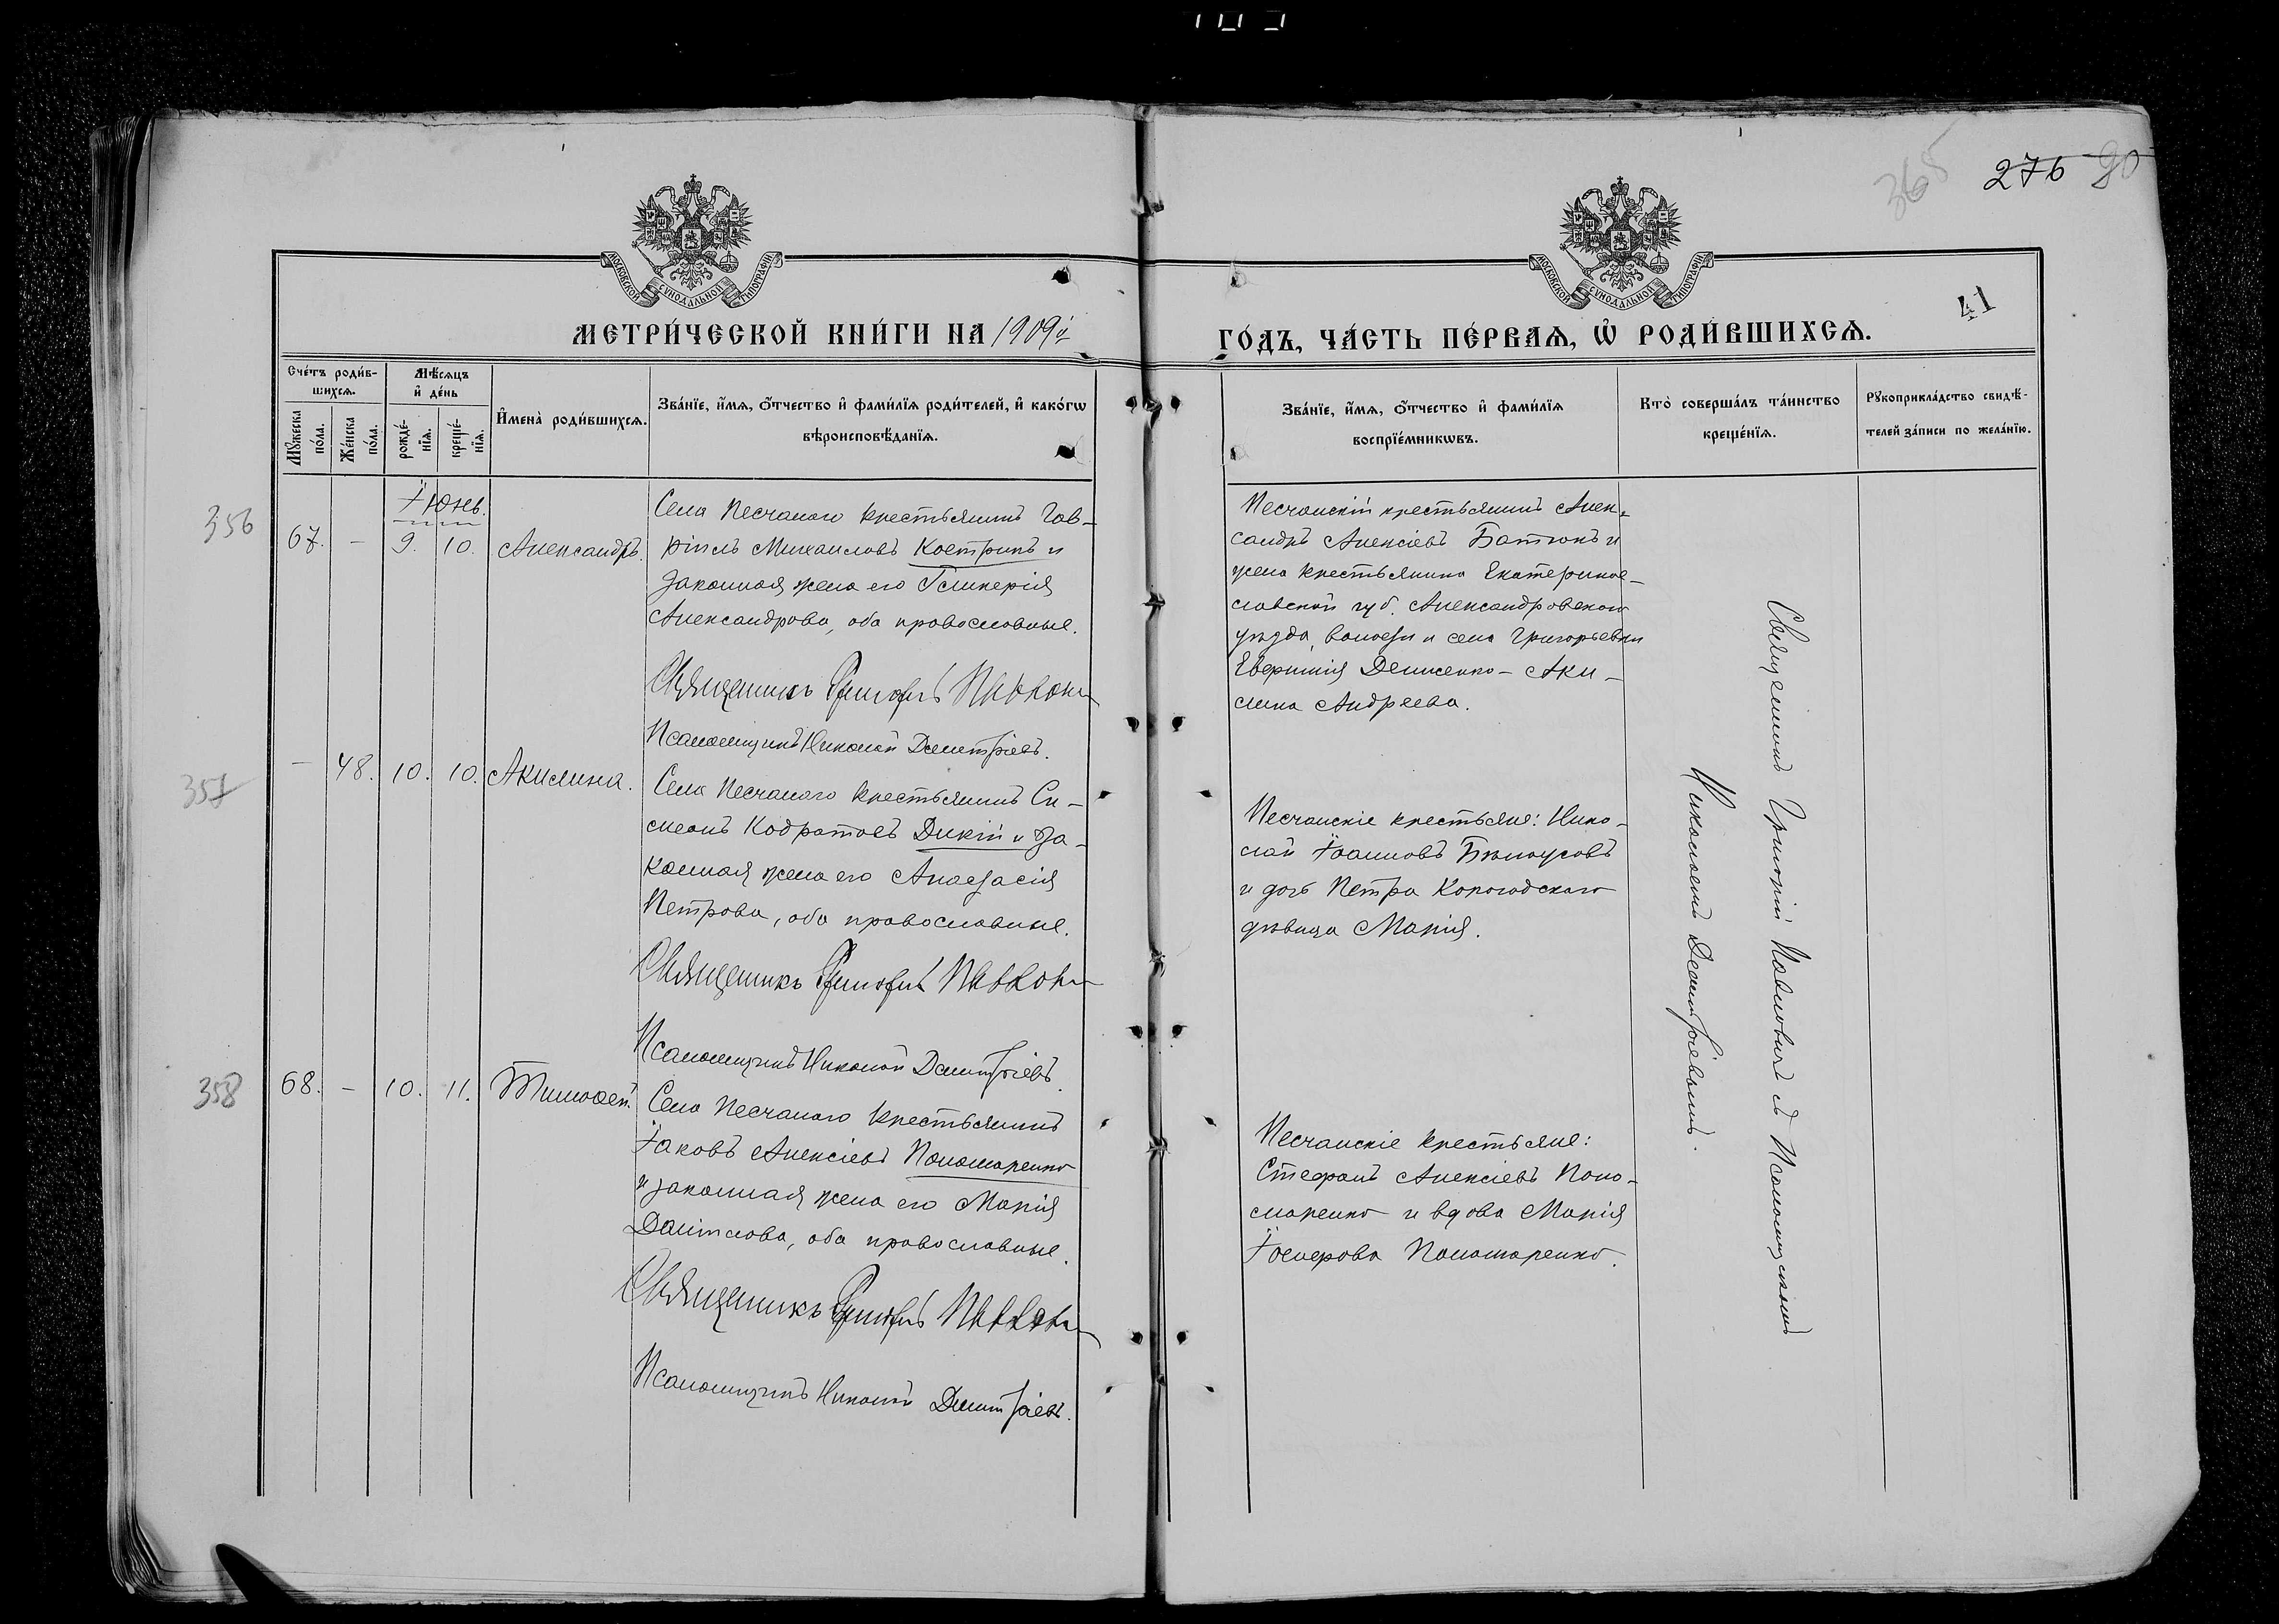 365 276 80
МОСКОВСКОЙ СѴНОДАЛЬНОЙ ТИПОГРАФІИ
МОСКОВСКОЙ СѴНОДАЛЬНОЙ ТИПОГРАФІИ
41
МЕТРИ́ЧЕСКОЙ КНИ́ГИ НА 1909й
ГО́ДЪ, ЧА́СТЬ ПЕ́РВАѦ, Ѡ҆ РОДИ́ВШИХСѦ.
Сче́тъ роди́в-
шихсѧ.
Мꙋжеска по́ла.
Же́нска по́ла.
Мѣ́сѧцъ
и҆ де́нь
рожде́-
нїѧ.
креще́-
нїѧ.
И҆мена̀ роди́вшихсѧ.
Зва́нїе, и҆́мѧ, ѻ҆́тчество и҆ фами́лїѧ роди́телей, и҆ како́гѡ
вѣроисповѣ́данїѧ.
Зва́нїе, и҆́мѧ, ѻ҆́тчество и҆ фами́лїѧ
воспрїе́мникѡвъ.
Кто̀ соверша́лъ та́инство
креще́нїѧ.
Рꙋкоприкла́дство свидѣ́-
телей за́писи по жела́нїю.
Іюнь.
356
67. - 9. 10. Александръ.
Села Песчаного крестьянинъ Гав-
ріилъ Михаиловъ Костринъ и
законная жена его Гликерія
Александрова, оба православные.
Священникъ Григорій Павлович
Псаломщикъ Николай Димитріевъ.
Песчанскій крестьянинъ Алек-
сандръ Алексіевъ Батюкъ и
жена крестьянина Екатеринос-
лавской губ. Александровского
уѣзда, волости и села Григорьевки
Евфимія Денисенко - Аки-
лина Андреева.
357
- 48. 10. 10. Акилина.
Села Песчаного крестьянинъ Си-
меонъ Кодратовъ Дикій и за-
конная жена его Анастасія
Петрова, оба православные.
Священникъ Григорій Павлович
Псаломщикъ Николай Димитріевъ.
Песчанскіе крестьяне: Нико-
лай Іоанновъ Бѣлоусовъ
и дочь Петра Корогодского
дѣвица Марія.
358
68. - 10. 11. Тимоѳей.
Села Песчаного крестьянинъ
Іаковъ Алексіевъ Пономаренко
и законная жена его Марія
Даніилова, оба православные.
Священникъ Григорій Павлович
Псаломщикъ Николай Димитріевъ.
Песчанскіе крестьяне:
Стефанъ Алексіевъ Поно-
маренко и вдова Марія
Іосифова Пономаренко.
Священникъ Григорій Павловичъ съ Псаломщикомъ
Николаемъ Димитріевымъ.